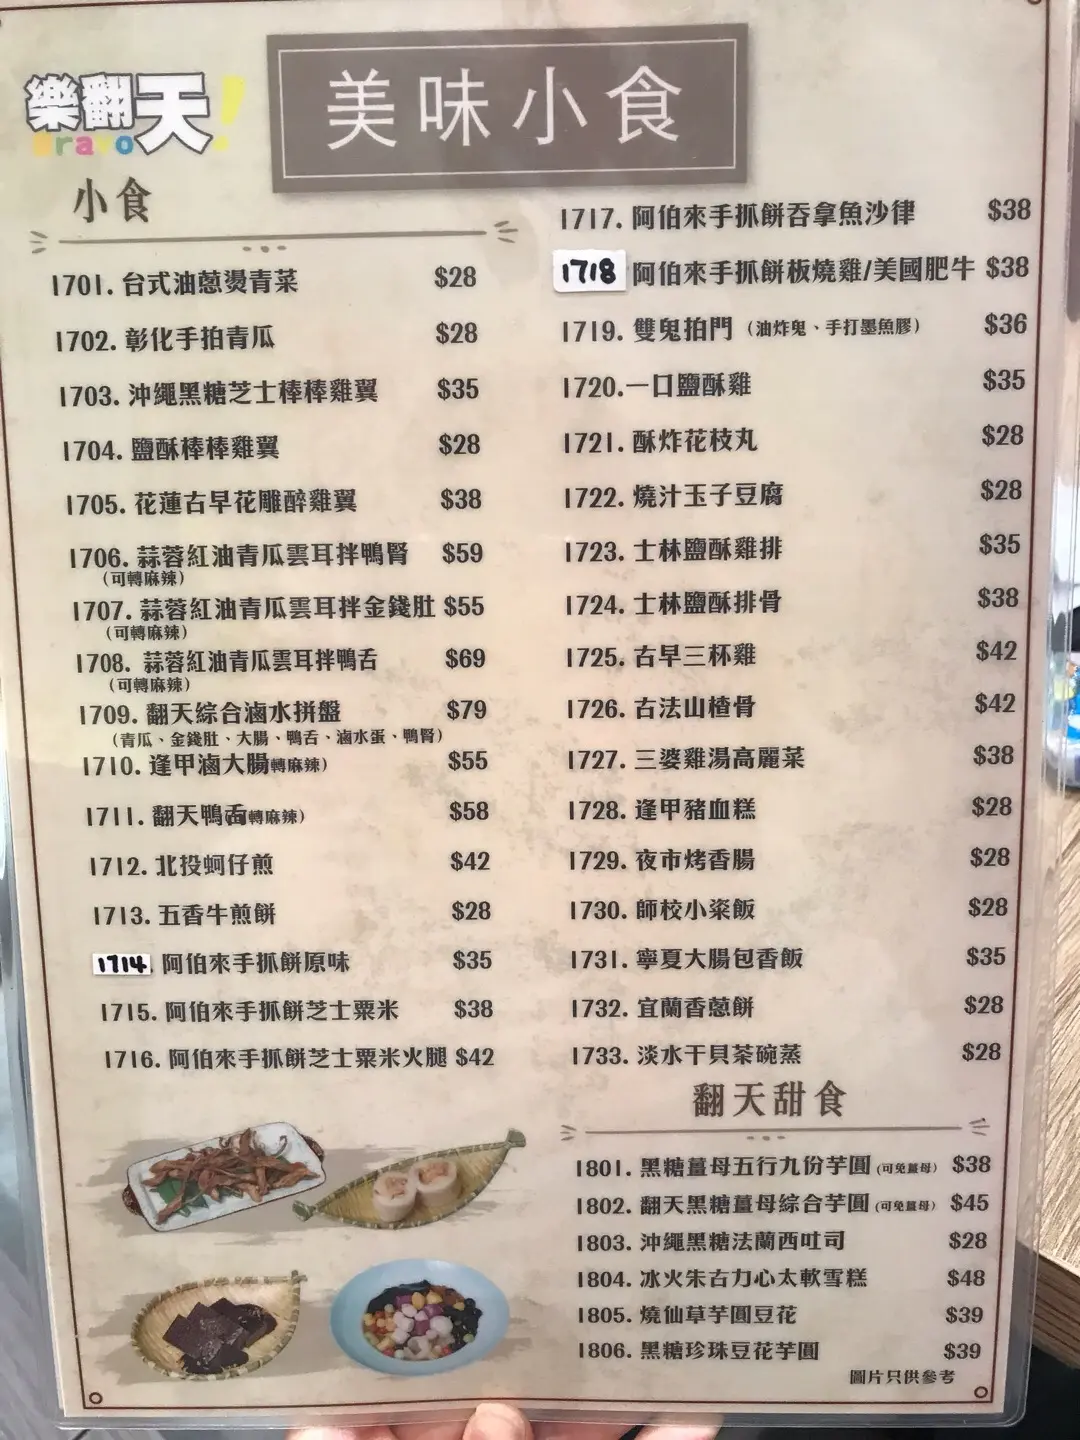 樂翻天!
Bravo
美味小食
小食
1701. 台式油蔥燙青菜 $28
1702. 彰化手拍青瓜 $28
1703. 沖繩黑糖芝士棒棒雞翼 $35
1704. 鹽酥棒棒雞翼 $28
1705. 花蓮古早花雕醉雞翼 $38
1706. 蒜蓉紅油青瓜雲耳拌鴨腎 $59
(可轉麻辣)
1707. 蒜蓉紅油青瓜雲耳拌金錢肚 $55
(可轉麻辣)
1708. 蒜蓉紅油青瓜雲耳拌鴨舌 $69
(可轉麻辣)
1709. 翻天綜合滷水拼盤 $79
(青瓜、金錢肚、大腸、鴨舌、滷水蛋、鴨腎)
1710. 逢甲滷大腸轉麻辣) $55
1711. 翻天鴨舌(可轉麻辣) $58
1712. 北投蚵仔煎 $42
1713. 五香牛煎餅 $28
1714. 阿伯來手抓餅原味 $35
1715. 阿伯來手抓餅芝士粟米 $38
1716. 阿伯來手抓餅芝士粟米火腿 $42
1717. 阿伯來手抓餅吞拿魚沙律 $38
1718 阿伯來手抓餅板燒雞/美國肥牛 $38
1719. 雙鬼拍門 (油炸鬼、手打墨魚膠) $36
1720. 一口鹽酥雞 $35
1721. 酥炸花枝丸 $28
1722. 燒汁玉子豆腐 $28
1723. 士林鹽酥雞排 $35
1724. 士林鹽酥排骨 $38
1725. 古早三杯雞 $42
1726. 古法山楂骨 $42
1727. 三婆雞湯高麗菜 $38
1728. 逢甲豬血糕 $28
1729. 夜市烤香腸 $28
1730. 師校小粢飯 $28
1731. 寧夏大腸包香飯 $35
1732. 宜蘭香蔥餅 $28
1733. 淡水干貝茶碗蒸 $28
翻天甜食
1801. 黑糖薑母五行九份芋圓 (可免薑母) $38
1802. 翻天黑糖薑母綜合芋圓 (可免薑母) $45
1803. 沖繩黑糖法蘭西吐司 $28
1804. 冰火朱古力心太軟雪糕 $48
1805. 燒仙草芋圓豆花 $39
1806. 黑糖珍珠豆花芋圓 $39
圖片只供參考